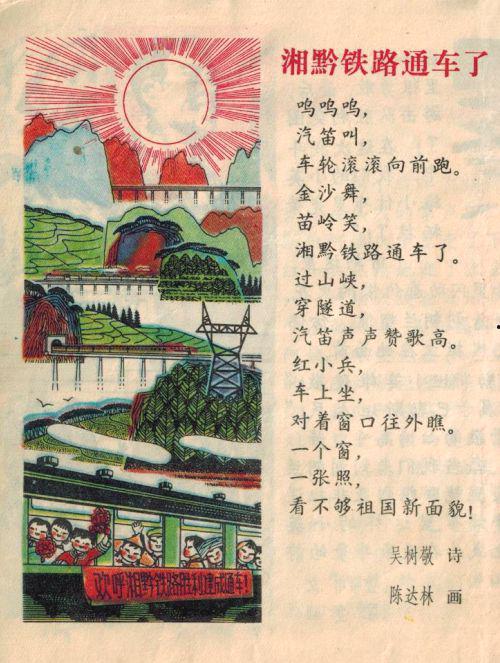 湘黔铁路通车了
呜呜呜，
汽笛叫，
车轮滚滚向前跑。
金沙舞，
苗岭笑，
湘黔铁路通车了。
过山峡，
穿隧道，
汽笛声声赞歌高。
红小兵，
车上坐，
对着窗口往外瞧。
一个窗，
一张照，
看不够祖国新面貌！
吴树敬 诗
陈达林 画
欢呼湘黔铁路胜利建成通车！